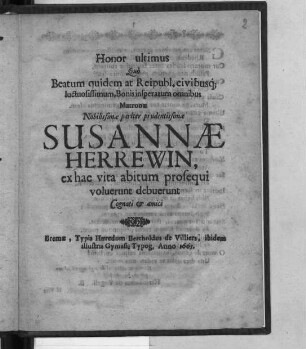 Honor ultimus
Quô
Beatum quidem at Reipubl. civibusq;
luctuosissimum, Bonis insperatum omnibus
Matronæ
Nobilissimæ pariter prudentissimæ
SUSANNÆ
HERREWIN,
ex hac vita abitum prosequi
voluerunt debuerunt
Cognati & amici
Bremæ, Typis Hæredum Bertholdus de Villiers, ibidem
illustris Gymnas, Typog. Anno 1665.